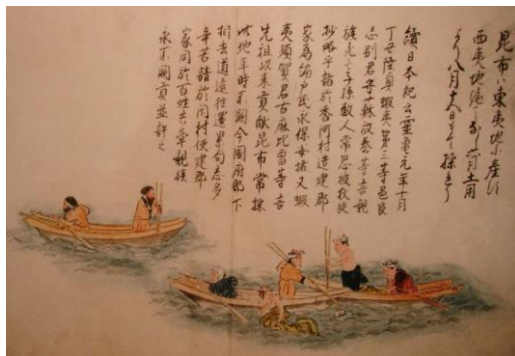 昆布ハ東夷地ニ産ス
西夷地
八月十五日まて採
續日本紀云靈亀元年十月
丁丑陸奥蝦夷第三等邑良
志別君宇蘇弥奈等言親
族死亡子孫數人常恐被狄徒
抄略乎請於香河村造建郡
家為編戸民永保安堵又蝦
夷須賀君古麻比留等言
先祖以来貢献昆布常採
此地年時不闕今國府郭下
相去道遠往還累旬多
辛苦請於閇村便建郡
家同於百姓共率親族
永不闕貢並許之